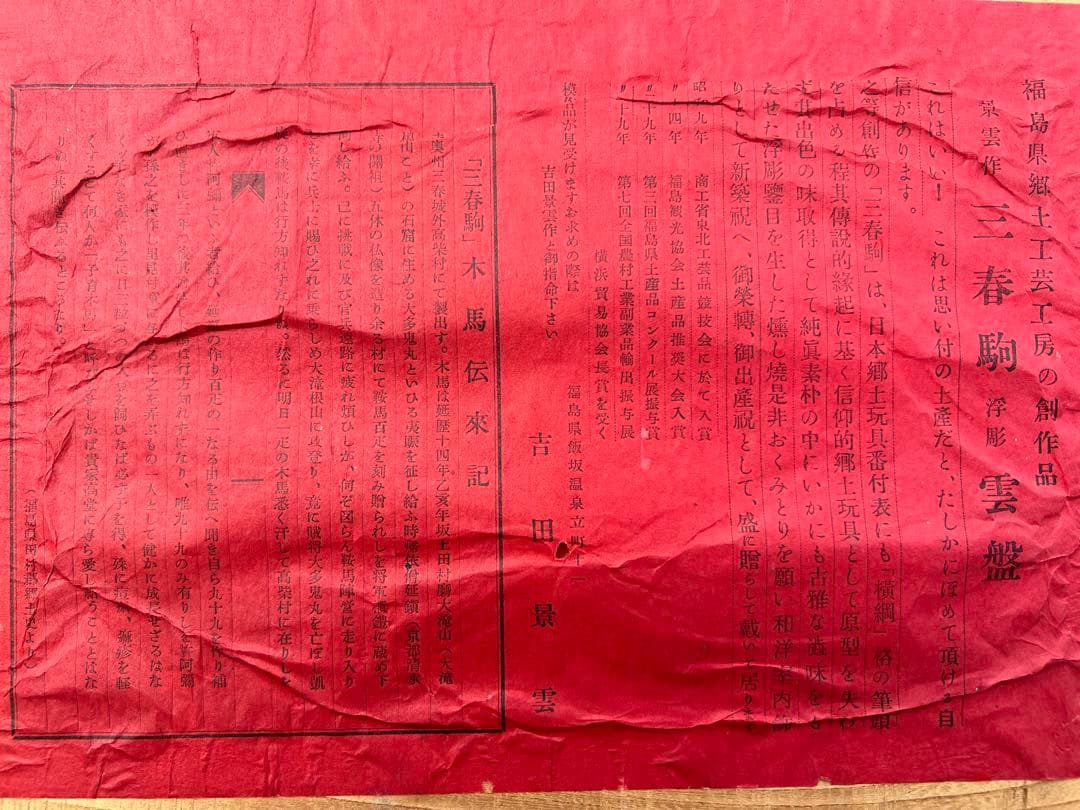 福島県郷土工芸工房の創作品
景雲作 三春駒 浮彫 雲盤
これはいい! これは思い付の土産だと、たしかにほめて頂ける自
信があります。
之等創作の「三春駒」は、日本郷土玩具番付表にも「横綱」格の筆頭
を占める程其傳説的緣起に基く信仰的郷土玩具として原型を失わ
ず其出色の味取得として純眞素朴の中にいかにも古雅な澁味をも
たせた浮彫鑿目を生した燻し燒是非おくみとりを願い和洋室内飾
りとして新築祝へ、御榮轉、御出産祝として、盛に贈らして戴いて居ります
昭和九年 商工省東北工芸品競技会に於て入賞
〃十四年 福島観光協会土産品推奨大会入賞
〃二十九年 第三回福島県土産品コンクール展振与賞
〃二十九年 第七回全国農村工業副業品輸出振与展
横浜貿易協会長賞を受く
模造品が見受けますお求めの際は
吉田景雲作と御指命下さい
福島県飯坂温泉立町十一
吉田景雲
「三春駒」木馬伝來記
奥州三春城外高柴村にて製出す。木馬は延歴十四年乙亥年坂上田村麿大滝山(大滝
根山こと)の石窟に生める大多鬼丸といひる夷賊を征し給ふ時
寺の開祖)五体の仏像を造り余る材にて鞍馬百疋を刻み贈られしを将軍鎧に蔵め下
向し給ふ。己に挑戦に及び官兵遠路に疲れ煩ひしが、何ぞ図らん鞍馬陣営に走り入り
を幸に兵士に賜ひ之れに乗らしめ大滝根山に攻登り、竟に賊将大多鬼丸を亡ぼし凱
の後戦馬は行方知れ 然るに明日一疋の木馬悉く汗して高柴村に在りしを
村人 阿彌 いふ者 の作り百疋の なる由を伝へ聞き自ら九十九を作り補
ひ は行方知れずになり、唯九十九のみ有りしを 阿彌
子孫之を 之を弄ぶもの一人として健かに成長せざるはな
も之に日三粒づつの を飼ひなば必ず子を得、殊に痘瘡、痲疹を軽
くす 何人か「子育木馬」と呼び しかば貴家高堂に専ら愛し給うこととはな
りぬと其 伝 るところなり。
(福島県田村郡郷土史より)